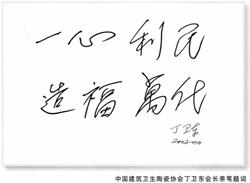 一心利民
造福万代
丁卫东
2002.
中国建筑卫生陶瓷协会丁卫东会长亲笔题词